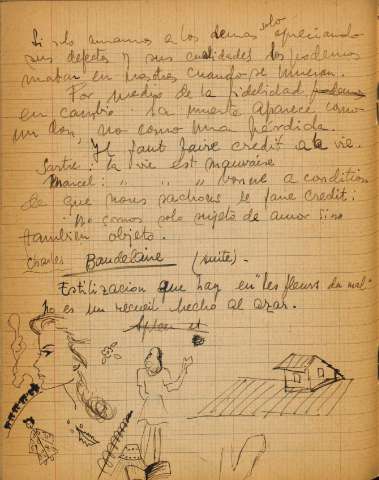 Si solo amamos a los demas solo apreciando
sus defectos y sus cualidades los podemos
matar en nosotros cuando se mueran.
Por medio de la fidelidad podemos
en cambio la muerte aparece como
un don, no como una pérdida.
Il faut faire credit a la vie.
Sartre: la vie est mauvaise
Marcel: " " " bonne a condition
de que nous sachons se faire credit.
No somos solo sujeto de amor sino
tambien objeto.
Charles Baudelaire (suite) -
Estilizacion que hay en "les fleurs du mal"
no es un recueil hecho al azar.